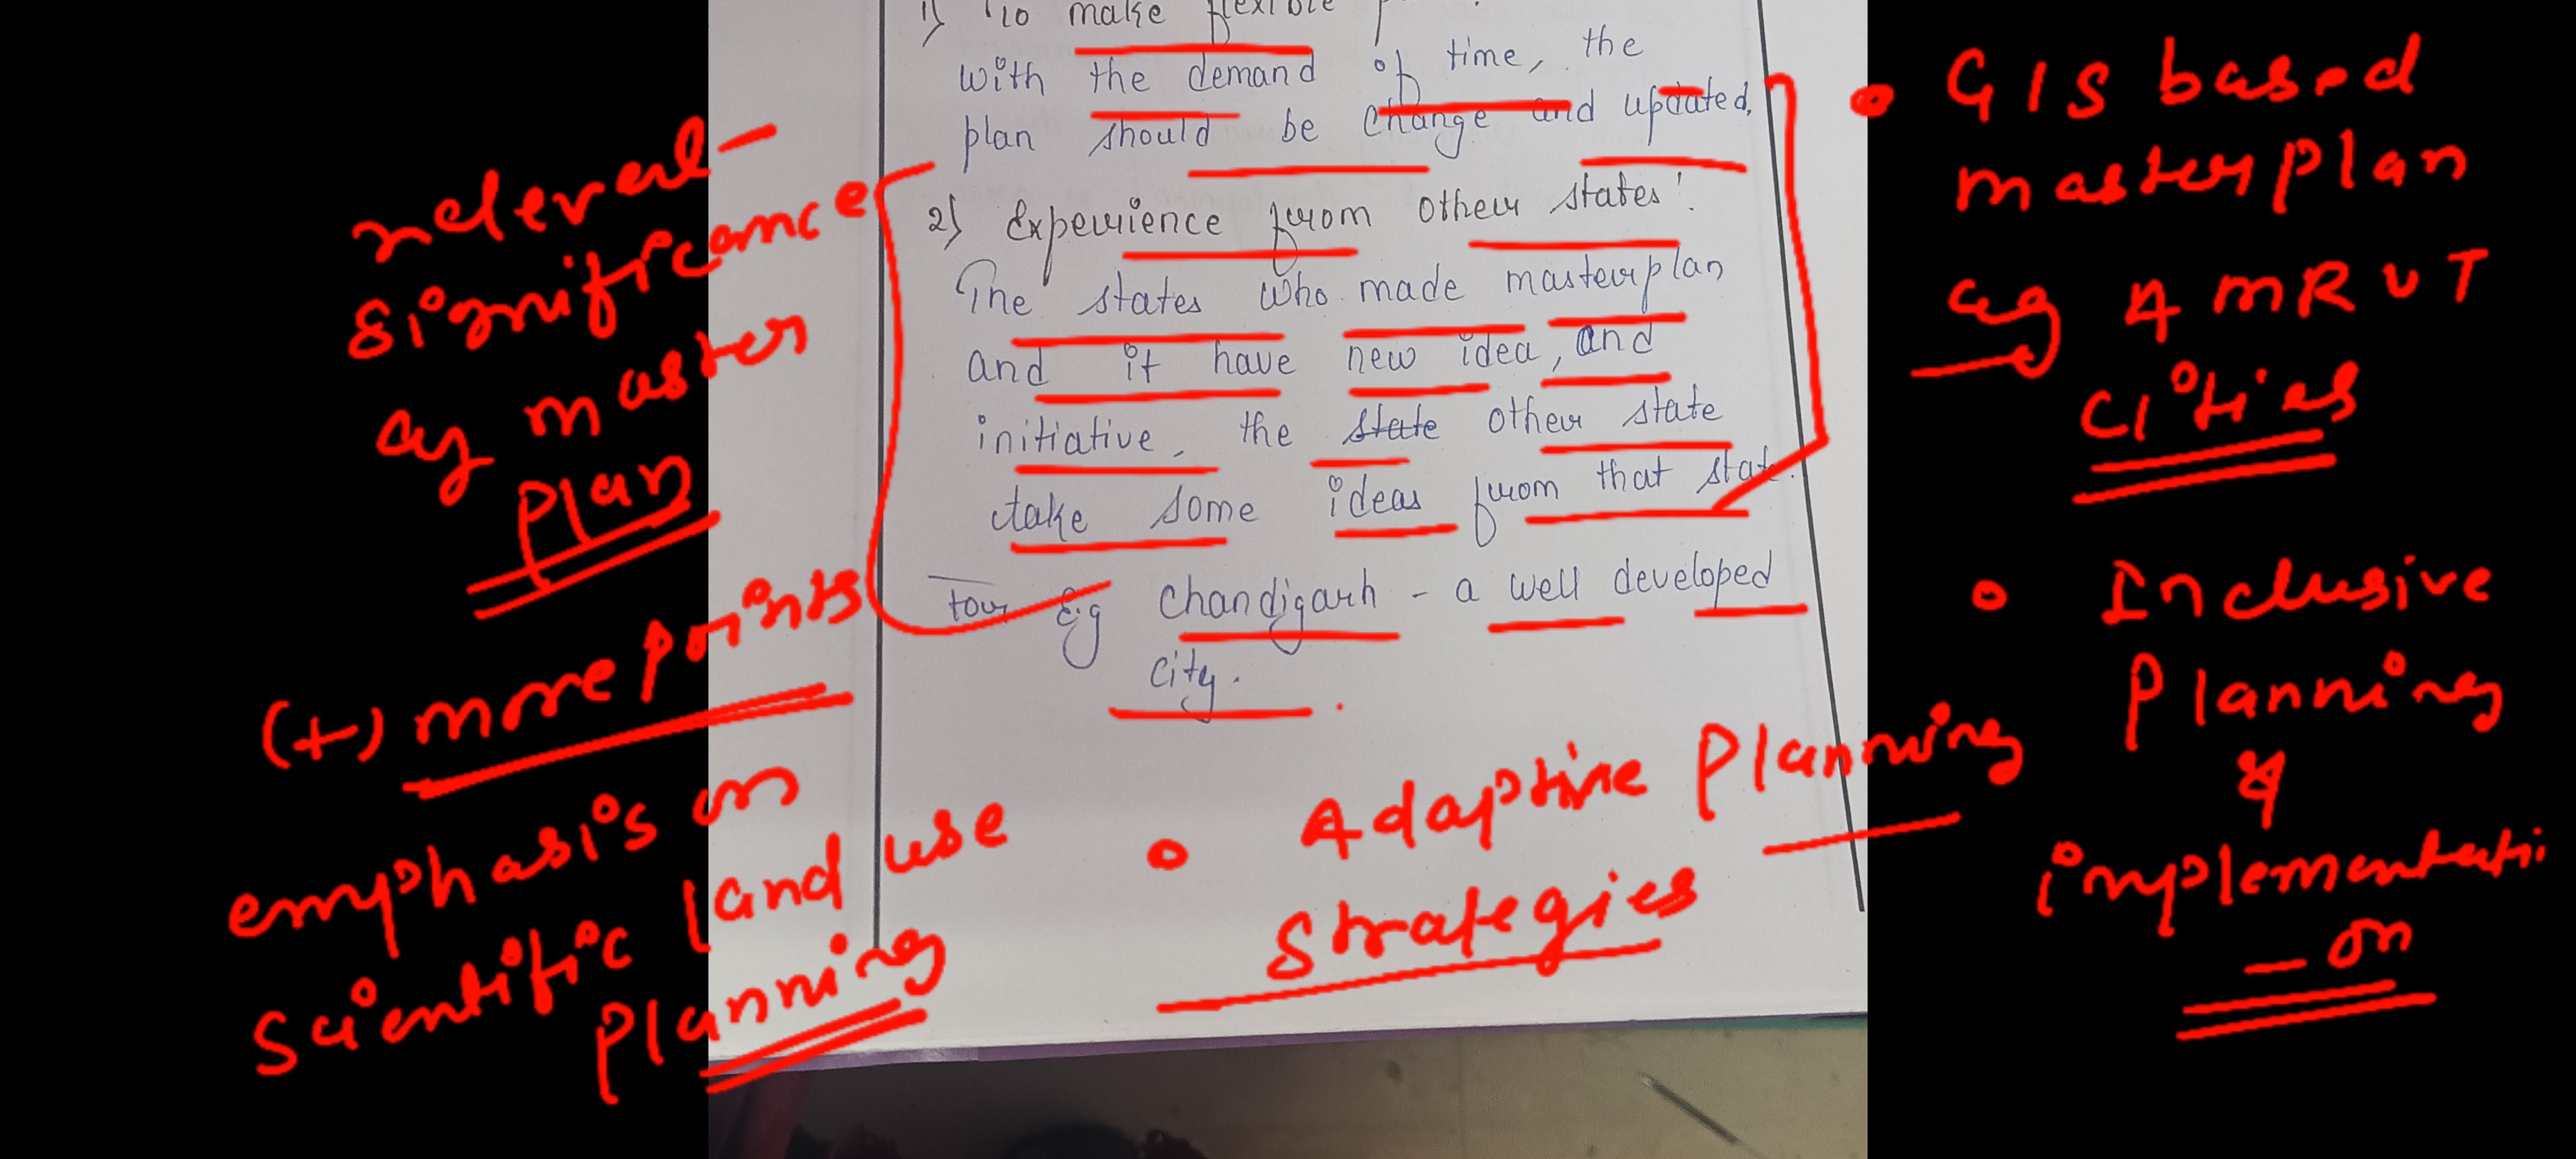 1) To make flexible
with the demand of time, the
plan should be change and updated.
2) Experience from other states:
The states who made masterplan
and it have new idea, and
initiative, the state other state
take some ideas from that stat.
E.g Chandigarh - a well developed
city.
relevel-
significance
of master
plan
(+) more points
emphasis on
scientific land use
planning
• Adaptive Planning
Strategies
• GIS based
masterplan
eg AMRUT
cities
• Inclusive
Planning
&
implementati
- on